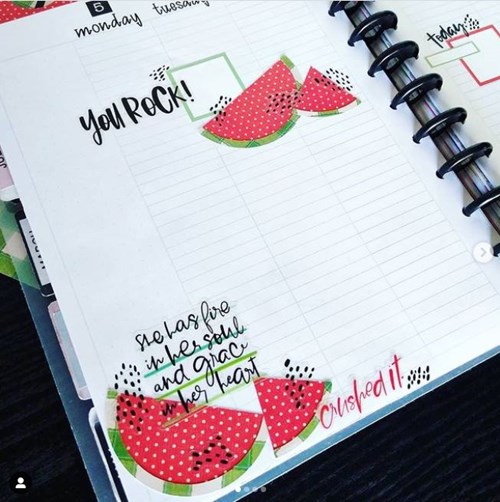 5
monday tuesday
today
you Rock!
she has fire
in her soul
and grace
in her heart
crushed it